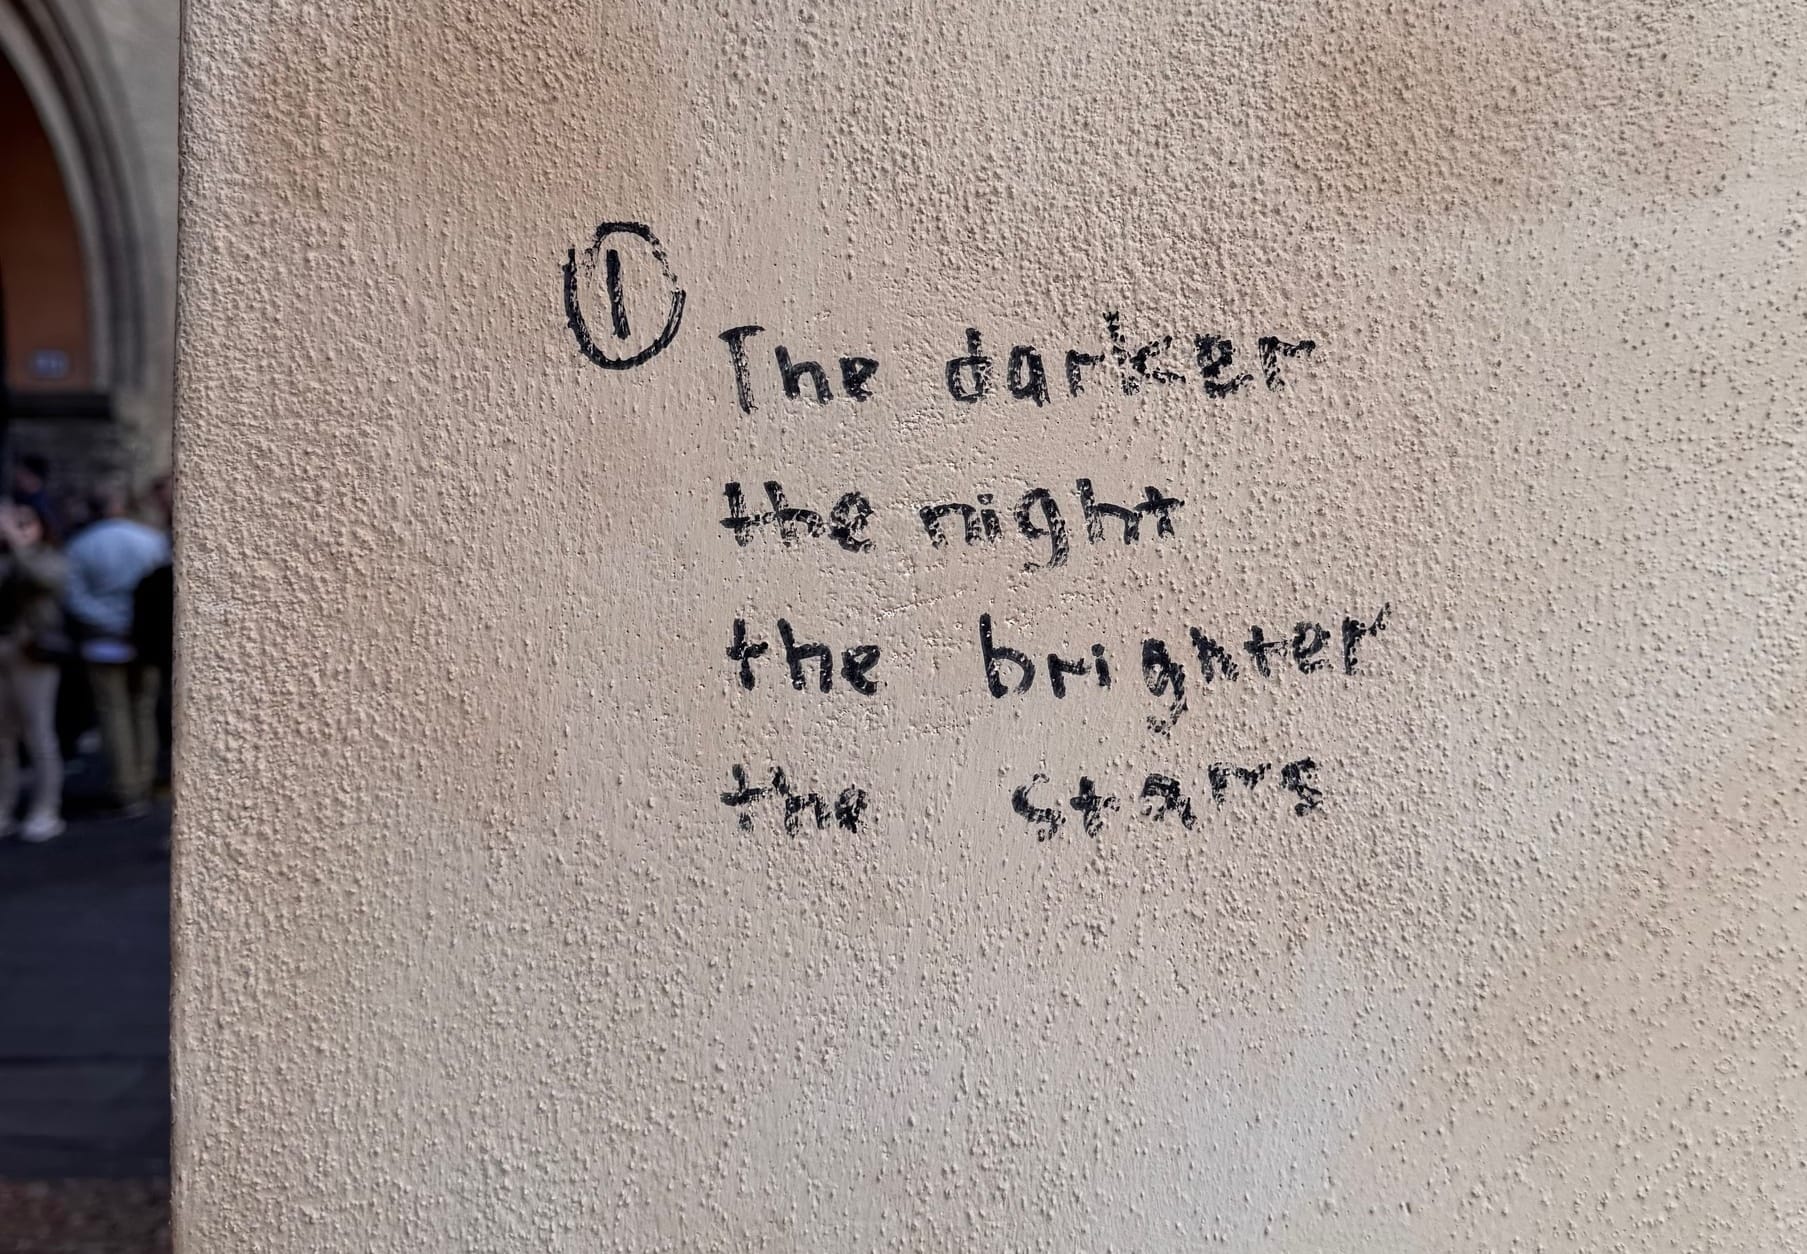 ①
The darker
the night
the brighter
the stars